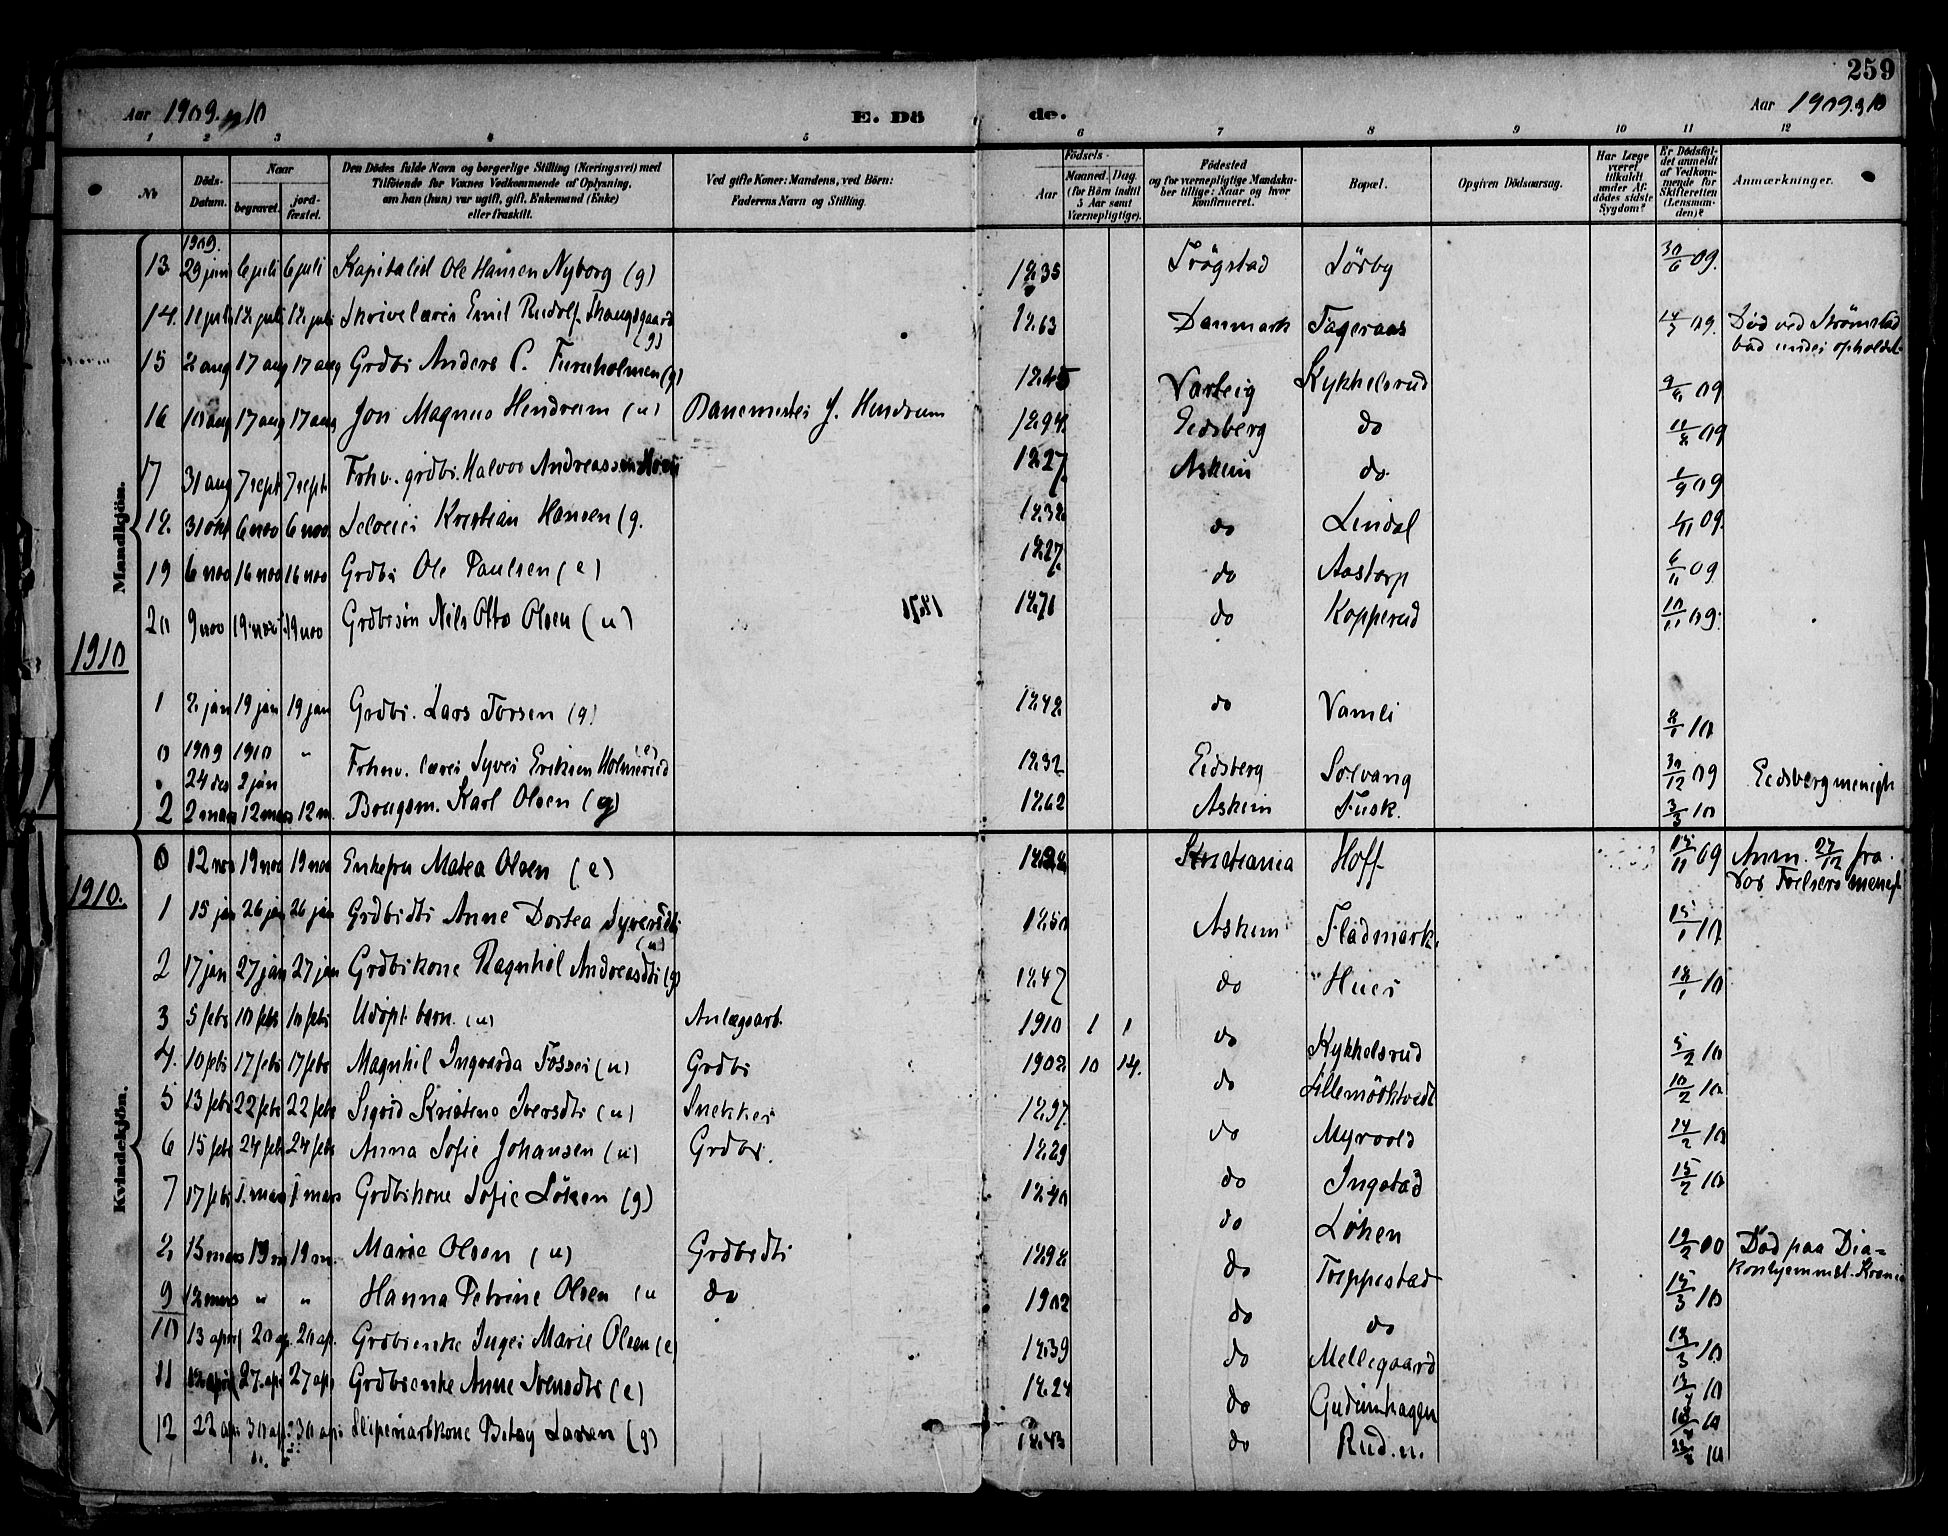 259
Aar 1909. og 10 E. Dö de. Aar 1909. og 10
1 2 3 4 5 6 7 8 9 10 11 12
No
Döds-Datum.
Naar
begravet.
jordfæstet.
Den Dödes fulde Navn og borgerlige Stilling (Næringsvei) med
Tilföiende for Voxnes Vedkommende af Oplysning,
om han (hun) var ugift, gift, Enkemand (Enke)
eller fraskilt.
Ved gifte Koner: Mandens, ved Börn:
Faderens Navn og Stilling.
Födsels-
Aar
Maaned. Dag.
(for Börn indtil
5 Aar samt
Værnepligtige).
Födested
og for værnepligtige Mandskaber tillige: Naar og hvor
konfirmeret.
Bopæl.
Opgiven Dödsaarsag.
Har Læge
været
tilkaldt
under Afdödes sidste
Sygdom?
Er Dödsfaldet anmeldt
af Vedkommende for
Skifteretten
(Lensmanden)?
Anmærkninger.
Mandkjön.
1909.
13 29 juni 6 juli 6 juli Kapitalist Ole Hansen Nyborg (g) 1835 Trögstad Sörby 30/6 09.
14. 11 juli 12. juli 12. juli Skrivelærer Emil Rudolf (g) 1863 Danmark Tageraas 14/7 09. Död ved Strömstad
bad under opholdet
15 2 aug 17 aug 17 aug Grdbr Anders C. Furuholmen (g) 1845 Varteig Kykkelsrud 9/8 09
16 10 aug 17 aug 17 aug Jon Magnus Hendrum (u) Banemester J. Hendrum 1894. Eidsberg do 11/8 09
17 31 aug 7 sept 7 sept. Frhv. grdbr. Halvor Andreassen 1827. Askim do 1/9 09
18. 31 okt 6 nov 6 nov. Selveier Kristian Hansen (g. 1832 do Lindal 1/11 09.
19 6 nov 16 nov 16 nov Grdbr Ole Paulsen (e) 1827. do Aastorp 6/11 09
20 9 nov 19. nov 19 nov Grdbrsön Nils Otto Olsen (u) 1871 do Kopperud 10/11 09.
1910
1 2 jan 19 jan 19 jan Grdbr. Lars Torsen (g) 1842 do Vamli 8/1 10
0 1909 24 des 1910 2 jan " Frhnv. lærer Syver Eriksen Holmsrud (e) 1832 Eidsberg Solvang 30/12 09 Eidsberg menigh
2 2 mars 12 mars 12 m. Brugsm. Karl Olsen (g) 1862 Askim Tusk. 3/3 10
Kvindekjön.
0 12 nov 19 nov 19 nov Enkefru Matea Olsen (e) Kristiania Hoff 15/11 09 Anm. 27/12 fra
Vor menigh
1910.
1 15 jan 26 jan 26 jan Grdbrdtr Anne Dortea Syversdtr (u) 1850 Askim Fladmark. 15/1 10
2 17 jan 27 jan 27 jan Grdbrkone Ragnhil Andreasdtr (g) 1847 do Huer 18/1 10
3 5 febr 10 febr 10 febr Udöpt barn. (u) Anlægsarb. 1910 1 1 do Kykkelsrud 5/2 10
4. 10 febr 17 febr 17 febr Magnhil Ingvarda Fosser (u) Grdbr 1902 10 14. do 10/2 10
5 13 febr 22 febr 22 febr Sigrid Kristine Iversdtr (u) Snekker 1897. do Myrvold 14/2 10
6 15 febr 24 febr 24 febr Anna Sofie Johansen (u) Grdbr. 1889 do Ingstad 15/2 10
7 17 febr 1. mars 1 mars Grdbrkone Sofie Löken (g) 1840 do Löken
8 15 mars 19 m 19 m. Marie Olsen (u) Grdbrdtr 1898 do Treppestad Död paa Dia=
konhjemmet. Krania
9 18 mars " " Hanna Petrine Olsen (u do 1902 do do 15/3 10
10 13 april 20 ap. 20 ap. Grdbrenke Inger Marie Olsen (e) 1839 do Mellegaard 18/3 10
11 27. apr 27 apr Grdbrenke Anne Svensdtr (e) 1824 do Gudimhagen
12 22 apr 30 apr 30 apr Sliperiarbkone Betsy Larsen (g) 1843 do Rud. n.